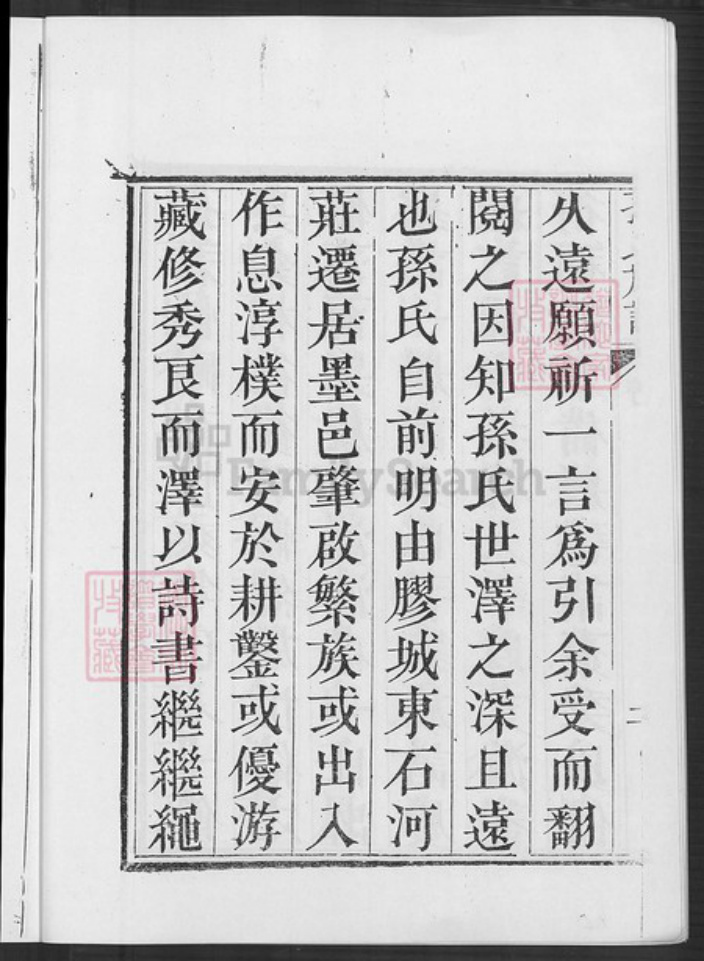 久遠願祈一言爲引余受而翻
閱之因知孫氏世澤之深且遠
也孫氏自前明由膠城東石河
莊遷居墨邑肇啟繁族或出入
作息淳樸而安於耕鑿或優游
藏修秀良而澤以詩書繼繼繩
二
FamilySearch